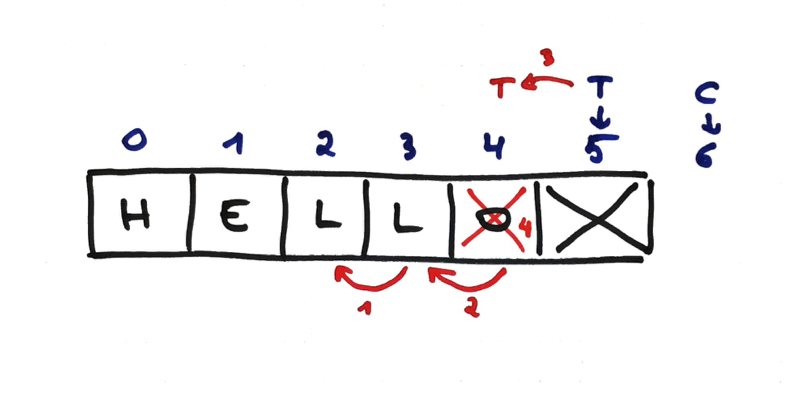 3
T T C
0 1 2 3 4 5 6
H E L L O 4
1 2